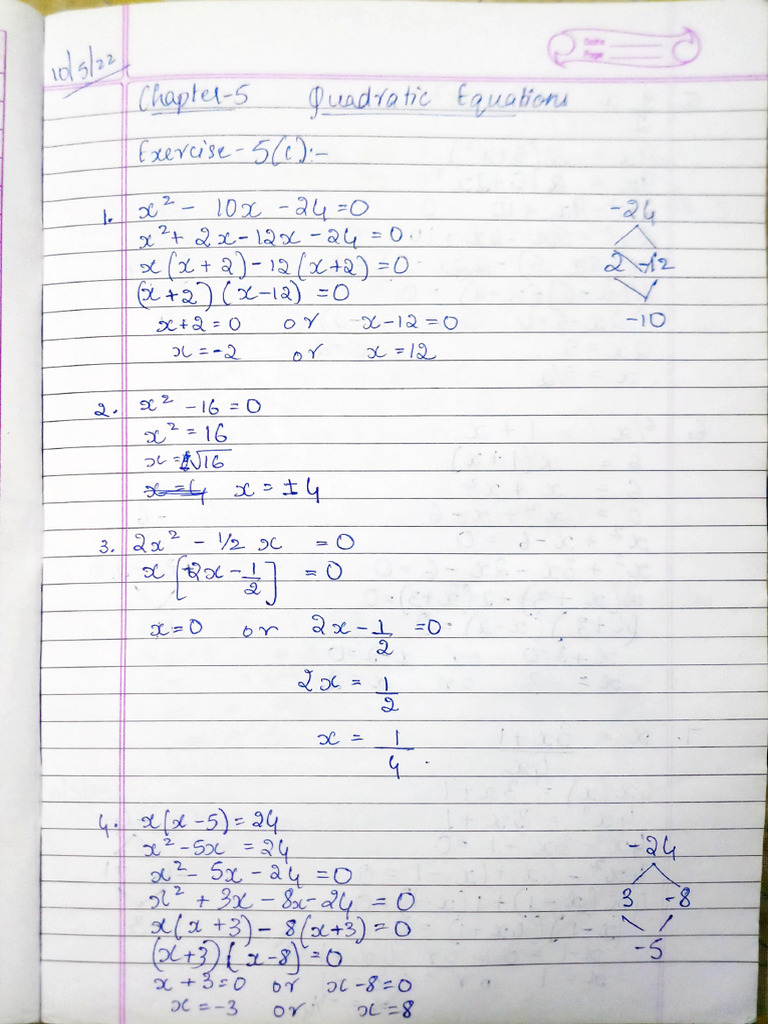 10/5/22
Date
Page
Chapter-5 Quadratic Equations
Exercise - 5(C):-
1. x² - 10x - 24 = 0
x² + 2x - 12x - 24 = 0
x(x + 2) - 12(x+2) = 0
(x+2) (x-12) = 0
x+2 = 0 or x-12 = 0
x = -2 or x = 12
-24
2 -12
-10
2. x² - 16 = 0
x² = 16
x = ±√16
x = 4 x = ±4
3. 2x² - 1/2 x = 0
x [2x - 1/2] = 0
x = 0 or 2x - 1/2 = 0
2x = 1/2
x = 1/4
4. x(x - 5) = 24
x² - 5x = 24
x² - 5x - 24 = 0
x² + 3x - 8x - 24 = 0
x(x + 3) - 8(x+3) = 0
(x+3) (x-8) = 0
x + 3 = 0 or x - 8 = 0
x = -3 or x = 8
-24
3 -8
-5